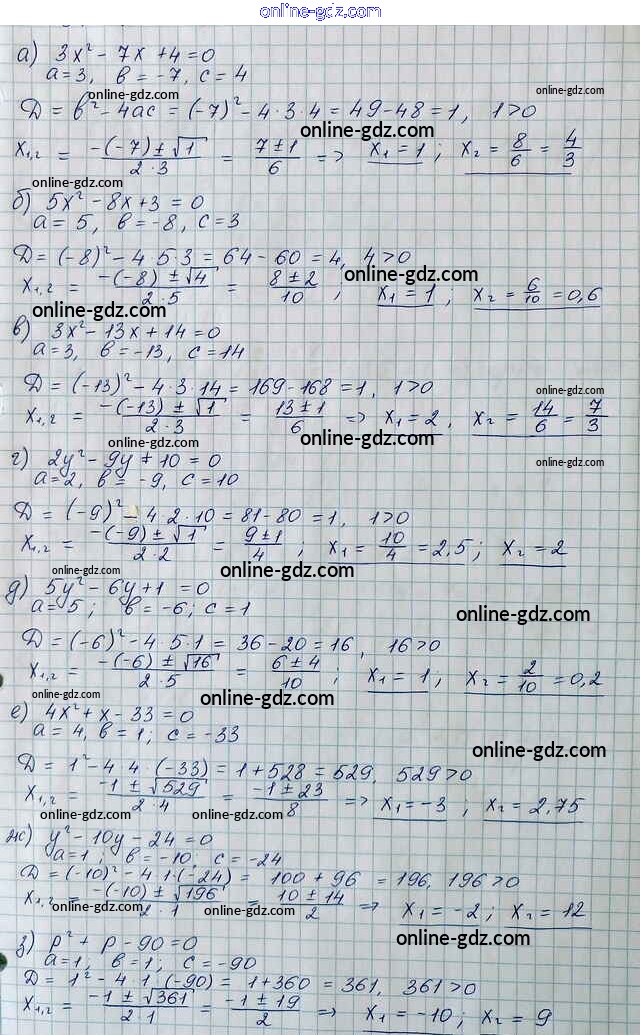 online-gdz.com
а) 3x² - 7x + 4 = 0
a = 3, в = -7, c = 4
online-gdz.com
online-gdz.com
Д = в² - 4ac = (-7)² - 4·3·4 = 49 - 48 = 1, 1 > 0
online-gdz.com
x₁,₂ = -(-7) ± √1 / 2·3 = 7 ± 1 / 6 => x₁ = 1; x₂ = 8/6 = 4/3
online-gdz.com
б) 5x² - 8x + 3 = 0
a = 5, в = -8, c = 3
online-gdz.com
Д = (-8)² - 4·5·3 = 64 - 60 = 4, 4 > 0
online-gdz.com
x₁,₂ = -(-8) ± √4 / 2·5 = 8 ± 2 / 10; x₁ = 1; x₂ = 6/10 = 0,6
online-gdz.com
в) 3x² - 13x + 14 = 0
a = 3, в = -13, c = 14
Д = (-13)² - 4·3·14 = 169 - 168 = 1, 1 > 0
online-gdz.com
x₁,₂ = -(-13) ± √1 / 2·3 = 13 ± 1 / 6 => x₁ = 2, x₂ = 14/6 = 7/3
online-gdz.com
online-gdz.com
online-gdz.com
г) 2y² - 9y + 10 = 0
a = 2, в = -9, c = 10
Д = (-9)² - 4·2·10 = 81 - 80 = 1, 1 > 0
x₁,₂ = -(-9) ± √1 / 2·2 = 9 ± 1 / 4; x₁ = 10/4 = 2,5; x₂ = 2
online-gdz.com
online-gdz.com
д) 5y² - 6y + 1 = 0
a = 5; в = -6; c = 1
online-gdz.com
Д = (-6)² - 4·5·1 = 36 - 20 = 16, 16 > 0
x₁,₂ = -(-6) ± √16 / 2·5 = 6 ± 4 / 10; x₁ = 1; x₂ = 2/10 = 0,2
online-gdz.com
е) 4x² + x - 33 = 0
a = 4, в = 1; c = -33
online-gdz.com
Д = 1² - 4·4·(-33) = 1 + 528 = 529, 529 > 0
x₁,₂ = -1 ± √529 / 2·4 = -1 ± 23 / 8 => x₁ = -3; x₂ = 2,75
online-gdz.com
online-gdz.com
ж) y² - 10y - 24 = 0
a = 1; в = -10, c = -24
online-gdz.com
Д = (-10)² - 4·1·(-24) = 100 + 96 = 196, 196 > 0
x₁,₂ = -(-10) ± √196 / 2·1 = 10 ± 14 / 2 => x₁ = -2; x₂ = 12
online-gdz.com
online-gdz.com
online-gdz.com
з) p² + p - 90 = 0
a = 1, в = 1; c = -90
Д = 1² - 4·1·(-90) = 1 + 360 = 361, 361 > 0
x₁,₂ = -1 ± √361 / 2·1 = -1 ± 19 / 2 => x₁ = -10; x₂ = 9